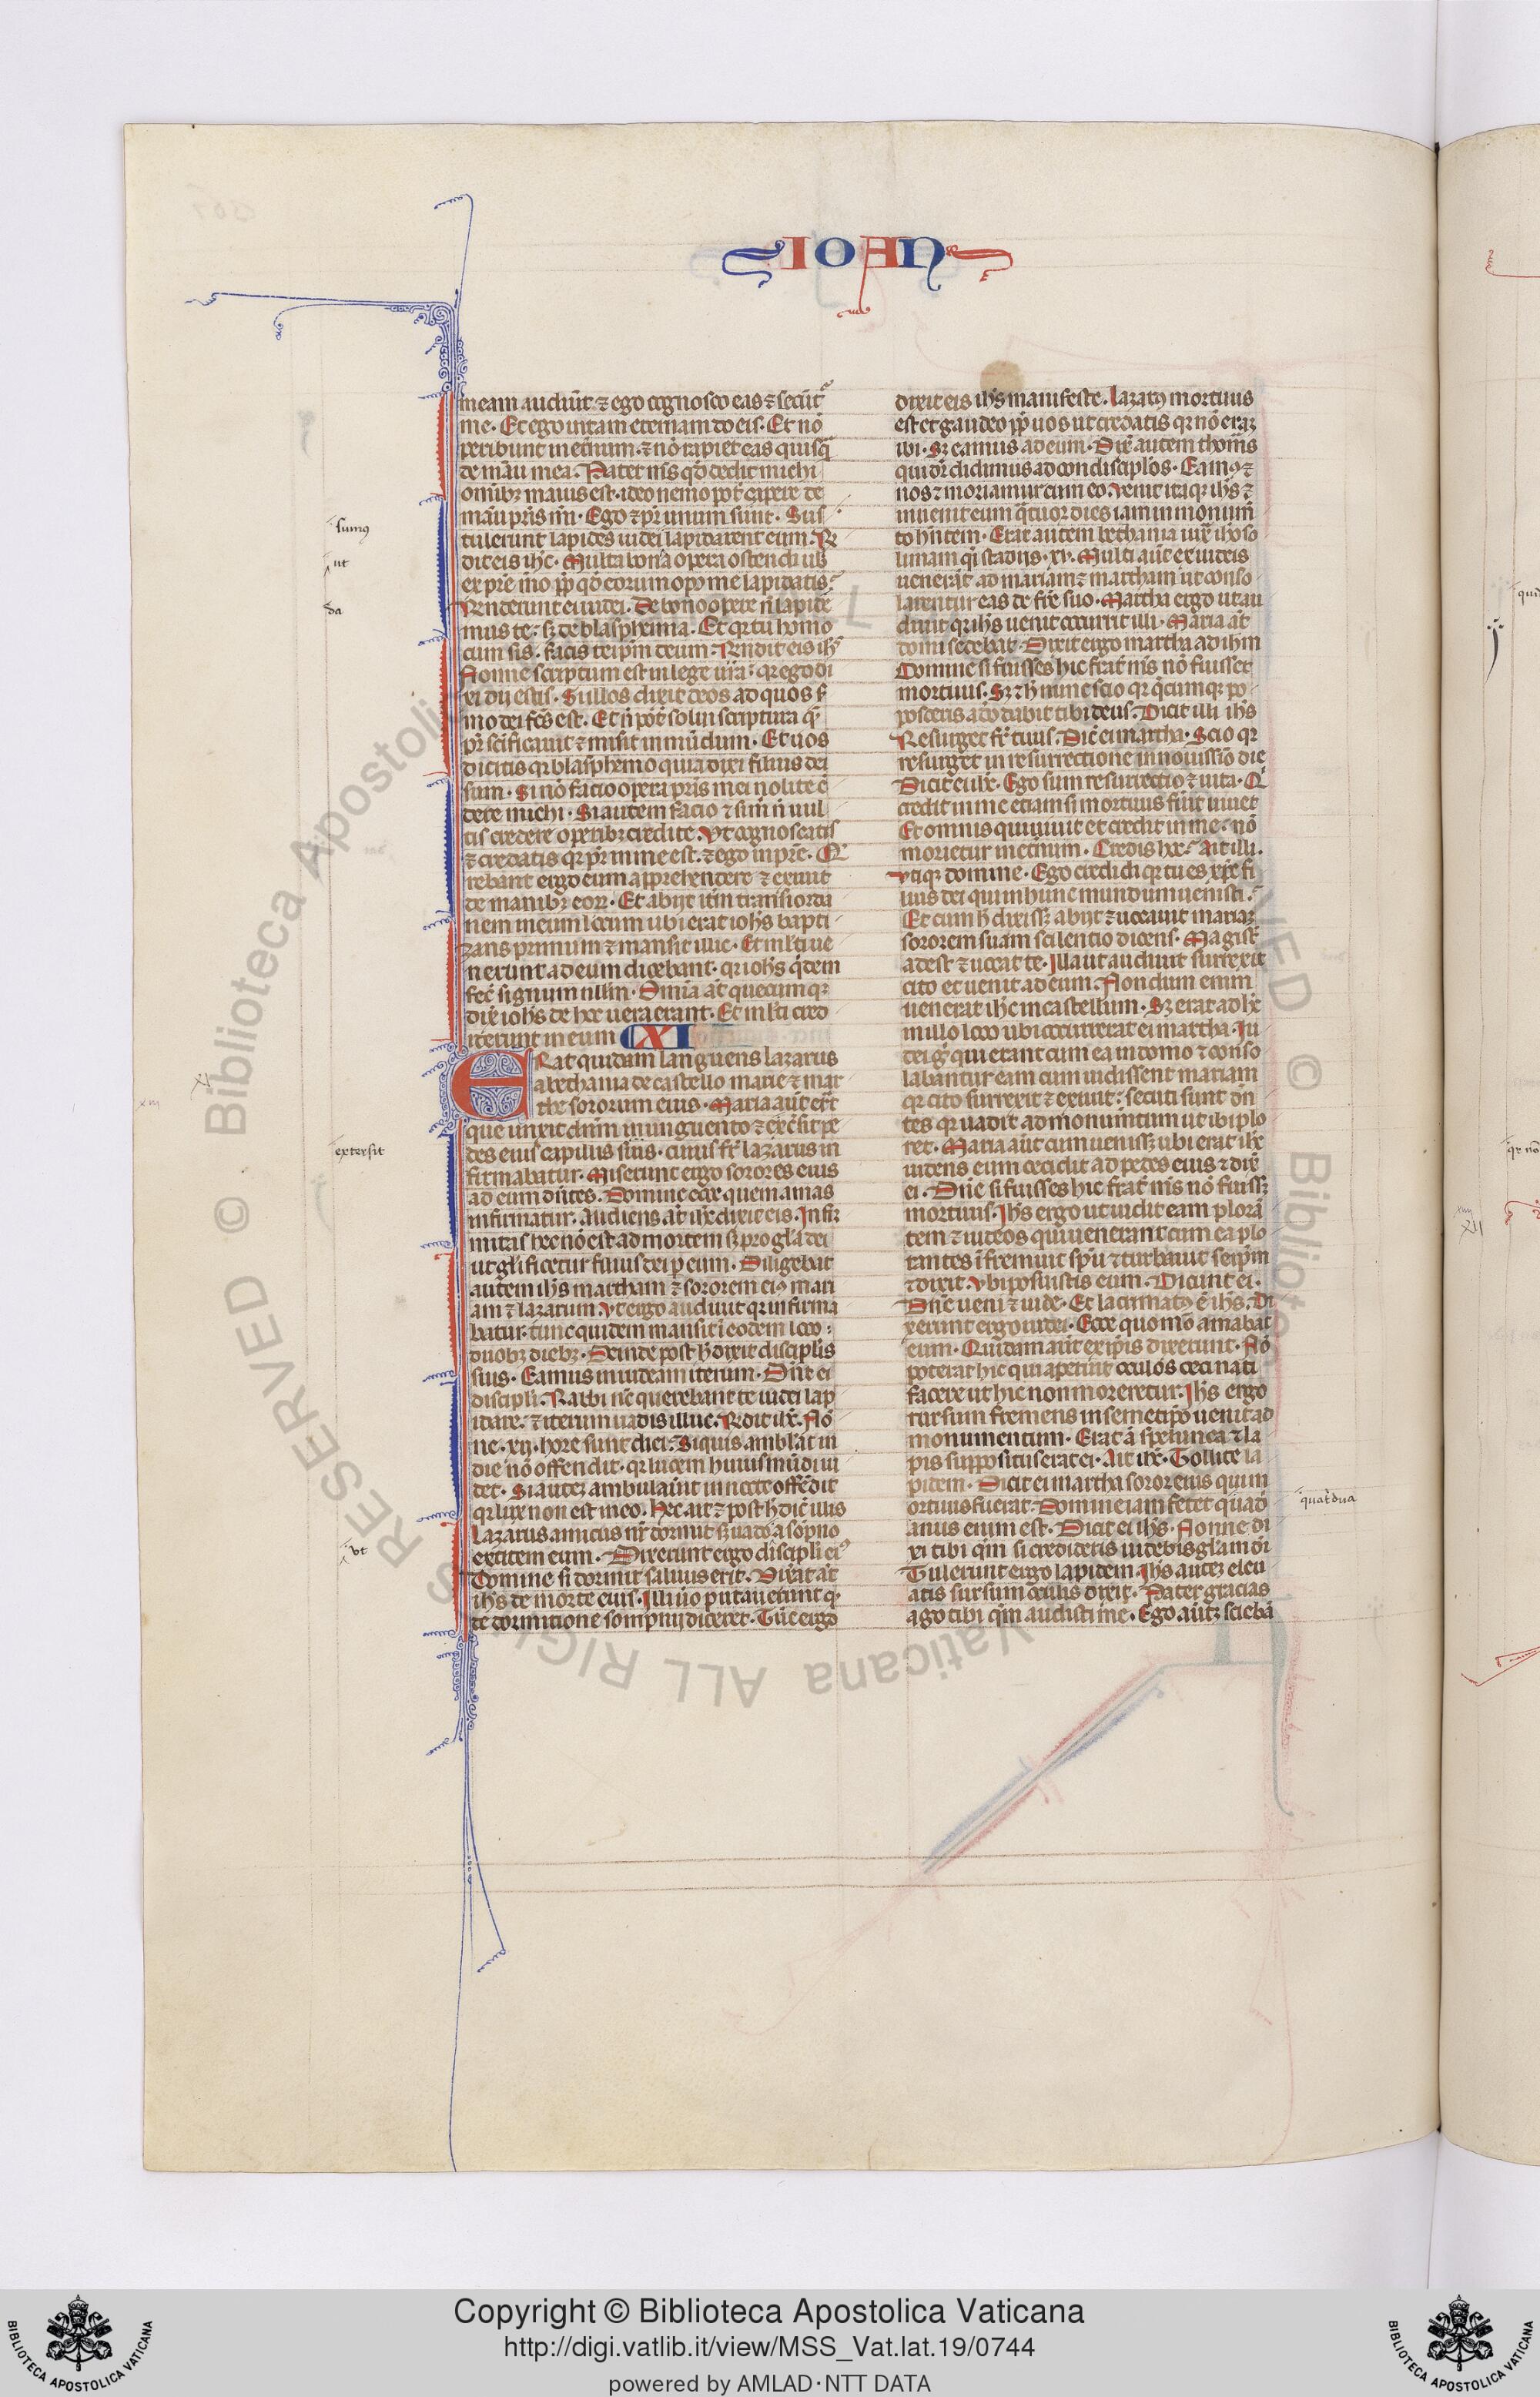 IOAN
meam audiūt ⁊ ego cognosco eas ⁊ secūt̃
me. Et ego uitam eternam do eis. Et nõ
peribunt inet̃num. ⁊ nõ rapiet eas quisq̃
de mãu mea. Pater m̃s qð dedit michi
omĩbꝫ maius est. ideo nemo pot̃ rapere de
mãu pr̃is m̃i. Ego ⁊ pr̃ unum sunt. Sus
tulerunt lapides iudei ut lapidarent eum. R̃
dit eis ihc̃. Multa bona opera ostendi uob̃
ex pr̃e m̃o ꝓpt̃ qð eorum opꝰ me lapidatis?
R̃nderunt ei iudei. De bono opere ñ lapida
mus te: sꝫ de blasphemia. Et qꝛ tu homo
cum sis. facis teip̃m deum. R̃ndit eis ih̃s
Nonne scriptum est in lege ũra: qꝛ ego di
xi dij estis. Si illos dixit deos ad quos s̃
mo dei fc̃s est. Et ñ pot̃ solui scriptura q̃
pr̃ sc̃ificauit ⁊ misit in mũdum. Et uos
dicitis qꝛ blasphemo quia dixi filius dei
sum. Si nõ facio opera pr̃is mei nolite c̃
dere michi. Si autem facio ⁊ si m̃ ñ uul
tis credere operibꝫ credite. Vt cognoscatis
⁊ credatis qꝛ pr̃ in me est. ⁊ ego in pr̃e. Q̃
rebant ergo eum apprehendere ⁊ exiuit
de manibꝫ eoꝝ. Et abijt it̃m trans iorda
nem in eum locum ubi erat ioh̃s bapti
zans primum ⁊ mansit illic. Et ml̃ti ue
nerunt ad eum ⁊ dicebant. qꝛ ioh̃s q̃dem
fec̃ signum nullm̃. Om̃ia at̃ quecumqꝫ
dix̃ ioh̃s de hoc uera erant. Et ml̃ti cred
iderunt in eum XI
ERat quidam languens lazarus
a bethania de castello marie ⁊ mar
the sororum eius. Maria aũt er̃t
que unxit dñm unguento ⁊ ext̃sit pe
des eius capillis suis. cuius fr̃ lazarus in
firmabatur. Miserunt ergo sorores eius
ad eum dñtes. Domine ecce quem amas
infirmatur. Audiens at̃ ihc̃ dixit eis. Infir
mitas hec nõ est ad mortem sꝫ pro gl̃a dei
ut gl̃ificetur filius dei ꝑ eum. Diligebat
autem ih̃s martham ⁊ sororem eiꝰ mari
am ⁊ lazarum. Vt ergo audiuit qꝛ infirma
batur. tunc quidem mansit ĩ eodem loco:
duobꝫ diebꝫ. Deinde post h̃ dixit discipl̃is
suis. Eamus in iudeam iterum. Dñt ei
discipl̃i. Rabbi nc̃ querebant te iudei lap
idare. ⁊ iterum uadis illuc. R̃dit ihc̃. Nõ
ne .xij. hore sunt diei? Si quis ambl̃at in
die nõ offendit. qꝛ lucem huius mũdi ui
det. Si auteꝫ ambulaũit in nocte offẽdit
qꝛ lux non est in eo. Hec ait ⁊ post h̃ dic̃ illis
Lazarus amicus nr̃ dormit sꝫ uado a sõpno
excitem eum. Dixerunt ergo discipl̃i eiꝰ
Domine si dormit saluus erit. Dixat at̃
ih̃s de morte eius. Illi ũo putauerunt q̃
de dormitione sompnij diceret. Tũc ergo
dixit eis ih̃s manifeste. Lazarꝰ mortuus
est et gaudeo ꝓpt̃ uos ut credatis qꝛ nõ eraꝫ
ibi. Sꝫ eamus ad eum. Dix̃ autem thom̃s
qui dr̃ didimus ad condiscipl̃os. Eamꝰ ⁊
nos ⁊ moriamur cum eo. Venit itaqꝫ ih̃s ⁊
inuenit eum q̃tuor dies iam in monum̃
to hñtem. Erat autem bethania iux̃ ih̃oso
limam q̃i stadijs .xv. Multi aũt ex iudeis
uener̃t ad mariam ⁊ martham ut conso
larentur eas de fr̃e suo. Martha ergo ut au
diuit qꝛ ih̃s uenit occurrit illi. Maria at̃
domi sedebat. Dixit ergo martha ad ih̃m
Domine si fuisses hic frat̃ m̃s nõ fuisset
mortuus. Sꝫ ⁊ h̃ nunc scio qꝛ q̃cumqꝫ po
posceris a deo dabit tibi deus. Dicit illi ih̃s
Resurget fr̃ tuus. Dic̃ ei martha. Scio qꝛ
resurget in resurrectione in nouissĩo die
Dicit ei ihc̃. Ego sum resurrectio ⁊ uita. Q̃
credit in me etiam si mortuus fũit uiuet
Et omnis qui uiuit et credit in me. nõ
morietur inet̃num. Credis hoc? Ait illi.
Vtiqꝫ domine. Ego credidi qꝛ tu es xp̃c fi
lius dei qui in hunc mundum uenisti.
Et cum h̃ dixissꝫ abijt ⁊ uocauit mariaꝫ
sororem suam scilencio dicens. Magist̃
adest ⁊ uocat te. Illa ut audiuit surrexit
cito et uenit ad eum. Nondum enim
uenerat ihc̃ in castellum. Sꝫ erat adhc̃
in illo loco ubi occurrerat ei martha. Iu
dei g̃ qui erant cum ea in domo ⁊ conso
labantur eam cum uidissent mariam
qꝛ cito surrexit ⁊ exiuit: secuti sunt dñ
tes qꝛ uadit ad monumtum ut ibi plo
ret. Maria aũt cum uenissꝫ ubi erat ihc̃
uidens eum cecidit ad pedes eius ⁊ dix̃
ei. Dñe si fuisses hic frat̃ m̃s nõ fuissꝫ
mortuus. Ih̃s ergo ut uidit eam plorã
tem ⁊ iudeos qui uenerant cum ea plo
rantes ĩfremuit sp̃u ⁊ turbauit seip̃m
⁊ dixit. Vbi posuistis eum. Dicunt ei.
Dñe ueni ⁊ uide. Et lacrimatꝰ ẽ ih̃s. Di
xerunt ergo iudei. Ecce quomõ amabat
eum. Quidam aũt ex ip̃is dixerunt. Nõ
poterat hic qui aperuit oculos ceci nati
facere ut hic non moreretur. Ih̃s ergo
rursum fremens in semetip̃o uenit ad
monumentum. Erat ã spelunca ⁊ la
pis suppositus erat ei. Ait ihc̃. Tollite la
pidem. Dicit ei martha soror eius qui m
ortuus fuerat. Domine iam fetet quad
anus enim est. Dicit ei ih̃s. Nonne di
xi tibi qm̃ si credideris uidebis gl̃am di
Tulerunt ergo lapidem. Ih̃s auteꝫ eleu
atis sursum oculis dixit. Pater gracias
ago tibi qm̃ audisti me. Ego aũtꝫ sciebã
sumꝰ
ut
da
XI
extersit
vt
quat̃dua
XII
Copyright © Biblioteca Apostolica Vaticana
http://digi.vatlib.it/view/MSS_Vat.lat.19/0744
powered by AMLAD·NTT DATA
BIBLIOTECA APOSTOLICA VATICANA
BIBLIOTECA APOSTOLICA VATICANA